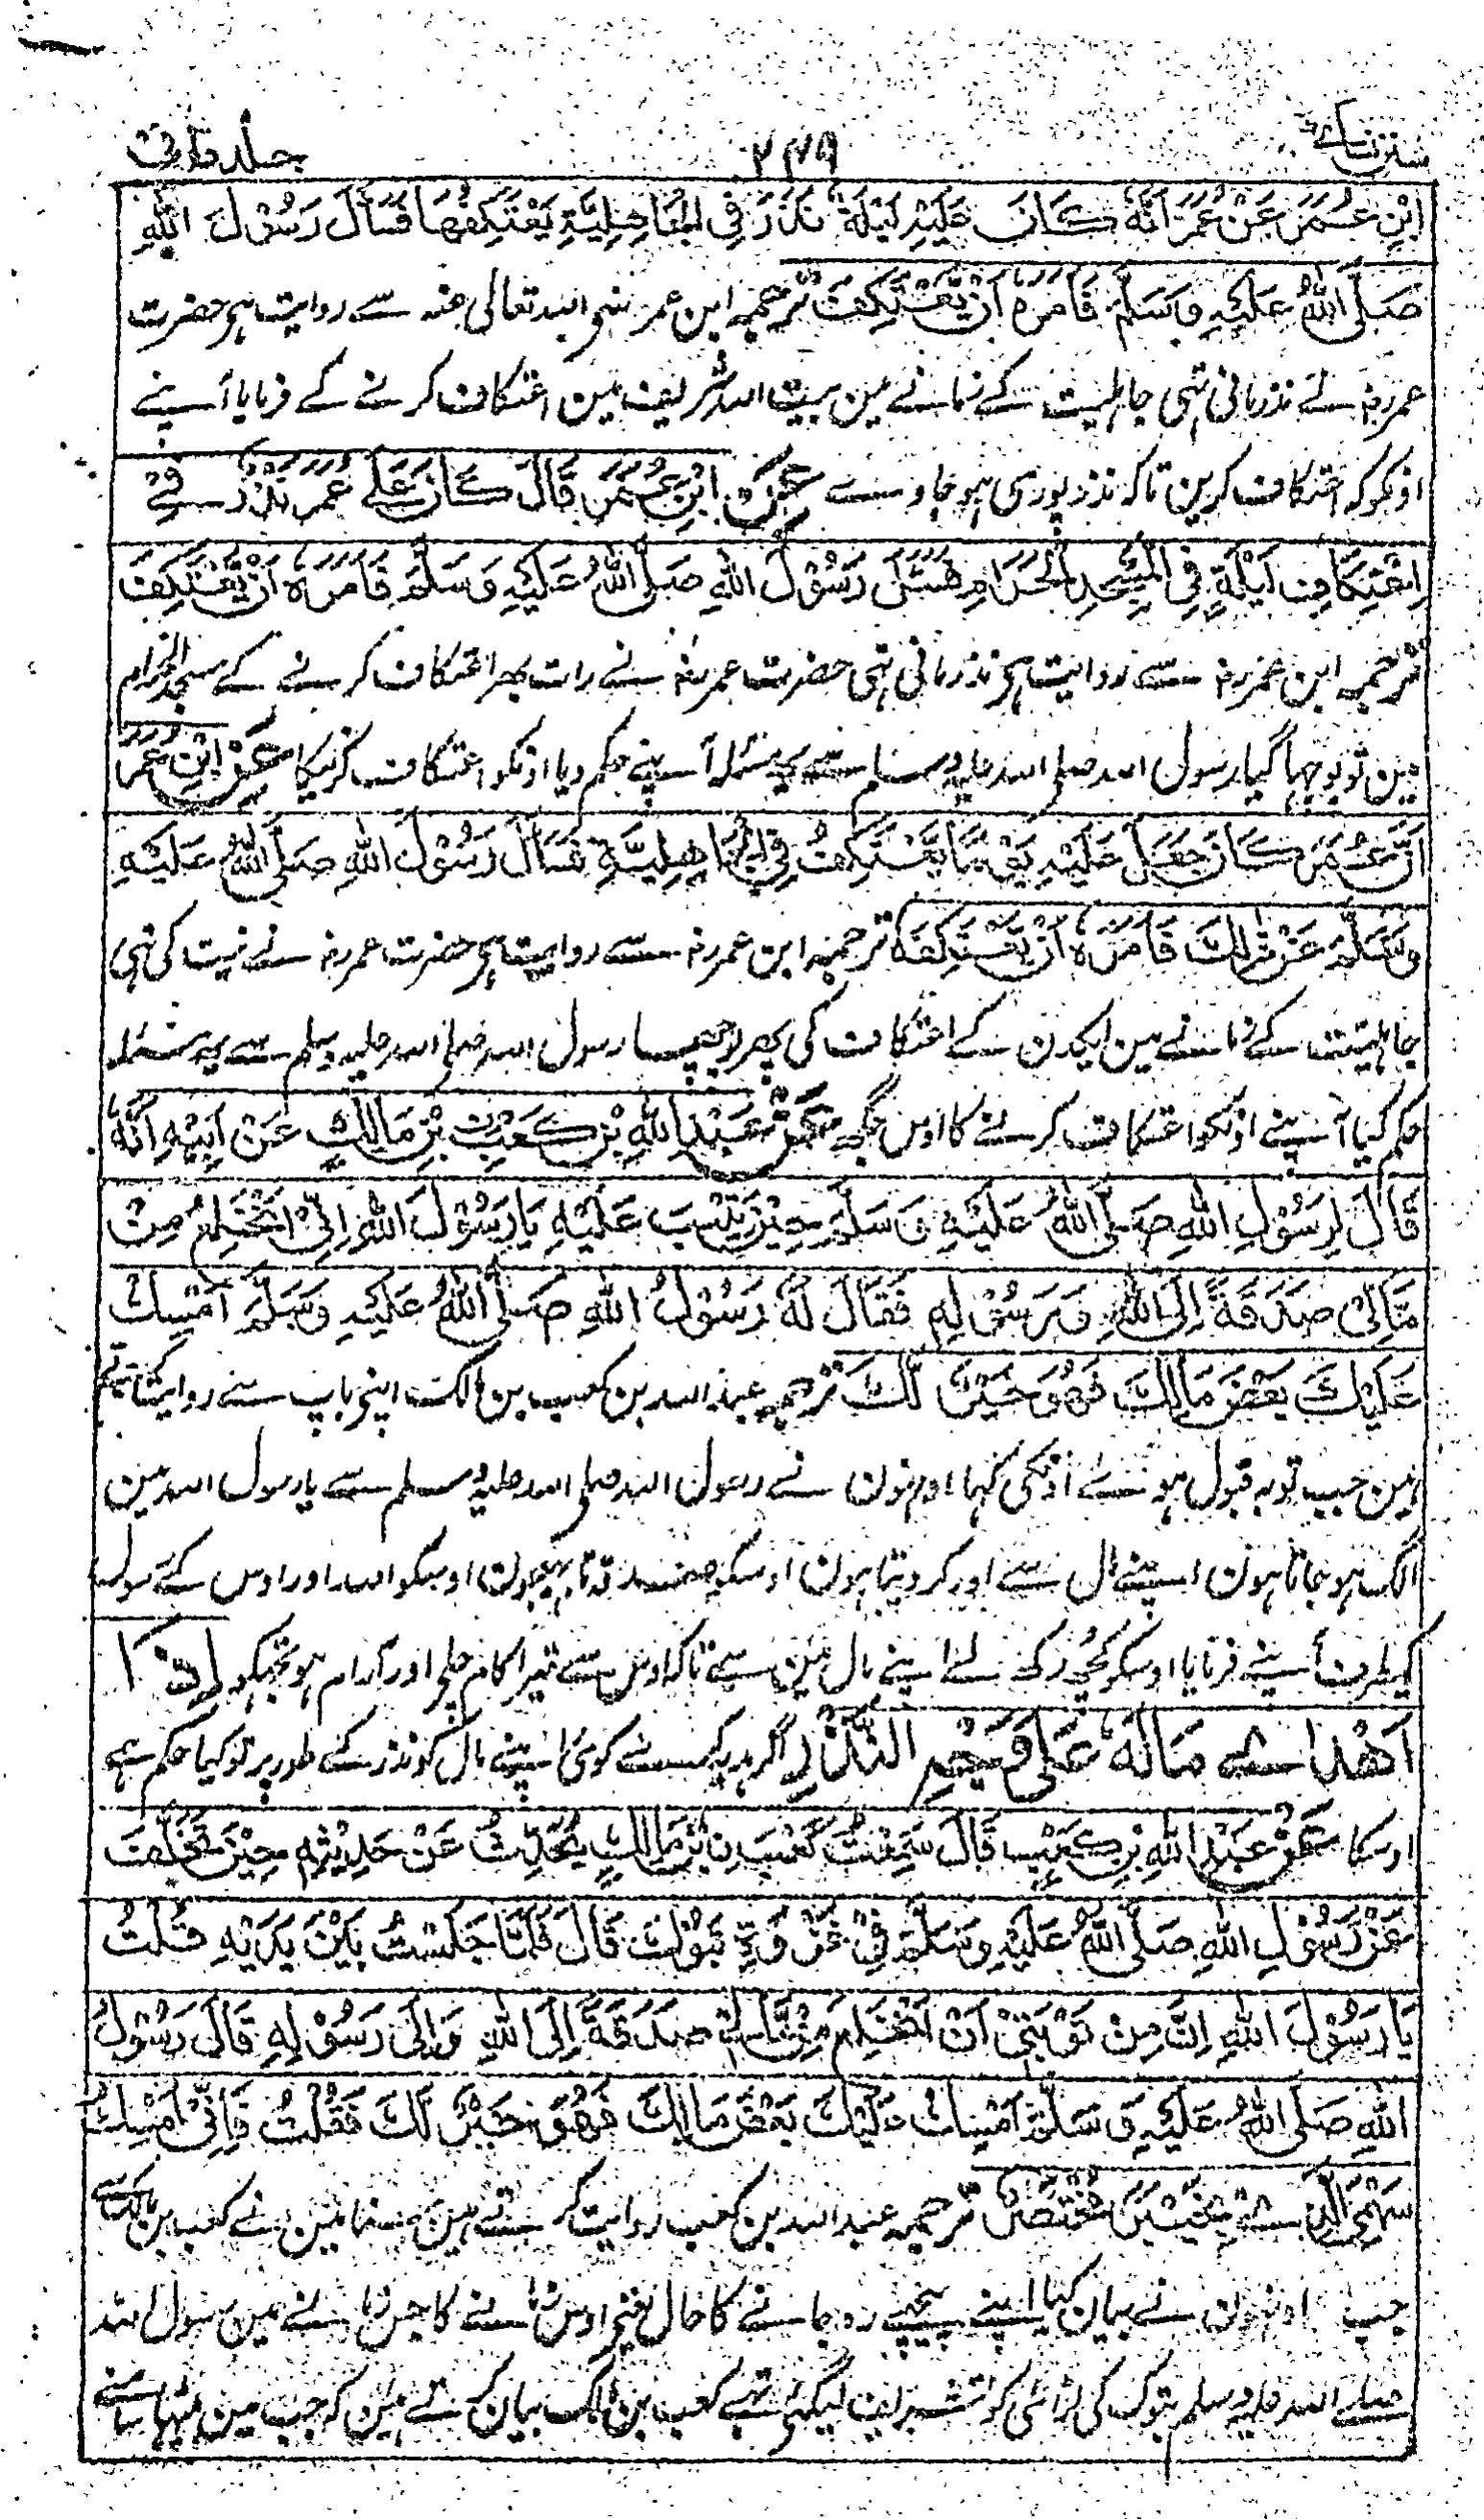 سنن نسائی ۲۴۹ جلد ثانی
ابْنِ عُمَرَ عَنْ عُمَرَ اَنَّهٗ كَانَ عَلَيْهِ لَيْلَةٌ نَذَرَ فِي الْجَاهِلِيَّةِ يَعْتَكِفُهَا فَسَأَلَ رَسُوْلَ اللهِ
صَلَّى اللهُ عَلَيْهِ وَسَلَّمَ فَاَمَرَهٗ اَنْ يَّعْتَكِفَ ترجمہ ابن عمر رضی اللہ تعالی عنہ سے روایت ہے حضرت
عمررضہ نے نذر مانی تہی جاہلیت کے زمانے مین بیت اللہ شریف مین اعتکاف کرنے کے فرمایا آپنے
اونکو کہ اعتکاف کرین تاکہ نذر پوری ہو جاوے عَنِ ابْنِ عُمَرَ قَالَ كَانَ عَلٰى عُمَرَ نَذْرٌ فِي
اِعْتِكَافِ لَيْلَةٍ فِي الْمَسْجِدِ الْحَرَامِ فَسُئِلَ رَسُوْلُ اللهِ صَلَّى اللهُ عَلَيْهِ وَسَلَّمَ فَاَمَرَهٗ اَنْ يَّعْتَكِفَ
ترجمہ ابن عمررضہ سے روایت ہے نذر مانی تہی حضرت عمررضہ نے رات بھر اعتکاف کرنے کے مسجد الحرام
مین تو پوچہا گیا رسول اللہ صلی اللہ علیہ وسلم سے یہ مسئلہ آپنے حکم دیا اونکو اعتکاف کرنیکا عَنِ ابْنِ عُمَرَ
اَنَّ عُمَرَ كَانَ جَعَلَ عَلَيْهِ يَوْمًا يَّعْتَكِفُ فِي الْجَاهِلِيَّةِ فَسَاَلَ رَسُوْلَ اللهِ صَلَّى اللهُ عَلَيْهِ
وَسَلَّمَ عَنْ ذٰلِكَ فَاَمَرَهٗ اَنْ يَّعْتَكِفَهٗ ترجمہ ابن عمررضہ سے روایت ہے حضرت عمررضہ نے نیت کی تہی
جاہلیت کے زمانے مین ایکدن کے اعتکاف کی پھر پوچہا رسول اللہ صلی اللہ علیہ وسلم سے یہ مسئلہ
حکم کیا آپنے اونکو اعتکاف کرنے کا اوس جگہ عَنْ عَبْدِ اللهِ بْنِ كَعْبِ بْنِ مَالِكٍ عَنْ اَبِيْهِ اَنَّهٗ
قَالَ لِرَسُوْلِ اللهِ صَلَّى اللهُ عَلَيْهِ وَسَلَّمَ حِيْنَ تِيْبَ عَلَيْهِ يَا رَسُوْلَ اللهِ اِنِّيْ اَنْخَلِعُ مِنْ
مَّالِيْ صَدَقَةً اِلَى اللهِ وَرَسُوْلِهٖ فَقَالَ لَهٗ رَسُوْلُ اللهِ صَلَّى اللهُ عَلَيْهِ وَسَلَّمَ اَمْسِكْ
عَلَيْكَ بَعْضَ مَالِكَ فَهُوَ خَيْرٌ لَّكَ ترجمہ عبداللہ بن کعب بن مالک اپنے باپ سے روایت کرتے
ہین جب توبہ قبول ہوئے اونکی کہا اونہون نے رسول اللہ صلی اللہ علیہ وسلم سے یا رسول اللہ مین
الگ ہو جاتا ہون اپنے مال سے اور کر دیتا ہون اوسکو صدقہ بہیجون اوسکو اللہ اور اوس کے رسول
کیطرف آپنے فرمایا اوسکو کچھ رکھ لے اپنے مال مین سے تاکہ اوس سے تیرا کام چلے اور آرام ہو تجہکو اِذَا
اَهْدٰى مَالَهٗ عَلٰى وَجْهِ النَّذْرِ اگر ہدیہ کرے کوئی اپنے مال کو نذر کے طور پر تو کیا حکم ہے
اوسکا عَنْ عَبْدِ اللهِ بْنِ كَعْبٍ قَالَ سَمِعْتُ كَعْبَ بْنَ مَالِكٍ يُّحَدِّثُ عَنْ حَدِيْثِهٖ حِيْنَ تَخَلَّفَ
عَنْ رَسُوْلِ اللهِ صَلَّى اللهُ عَلَيْهِ وَسَلَّمَ فِيْ غَزْوَةِ تَبُوْكَ قَالَ فَلَمَّا جَلَسْتُ بَيْنَ يَدَيْهِ قُلْتُ
يَا رَسُوْلَ اللهِ اِنَّ مِنْ تَوْبَتِيْ اَنْ اَنْخَلِعَ مِنْ مَّالِيْ صَدَقَةً اِلَى اللهِ وَاِلٰى رَسُوْلِهٖ قَالَ رَسُوْلُ
اللهِ صَلَّى اللهُ عَلَيْهِ وَسَلَّمَ اَمْسِكْ عَلَيْكَ بَعْضَ مَالِكَ فَهُوَ خَيْرٌ لَّكَ فَقُلْتُ فَاِنِّيْ اُمْسِكُ
سَهْمِيَ الَّذِيْ بِخَيْبَرَ مُخْتَصَرٌ ترجمہ عبداللہ بن کعب روایت کرتے ہین سنا مین نے کعب بن مالک سے
جب اونہون نے بیان کیا اپنے پیچہے رہ جانے کا حال یعنی اوس زمانے کا جس زمانے مین رسول اللہ
صلے اللہ علیہ وسلم تبوک کی لڑائی کو تشریف لیگئے تہے کعب بن مالک بیان کرتے ہین کہ جب مین بیٹہا سامنے